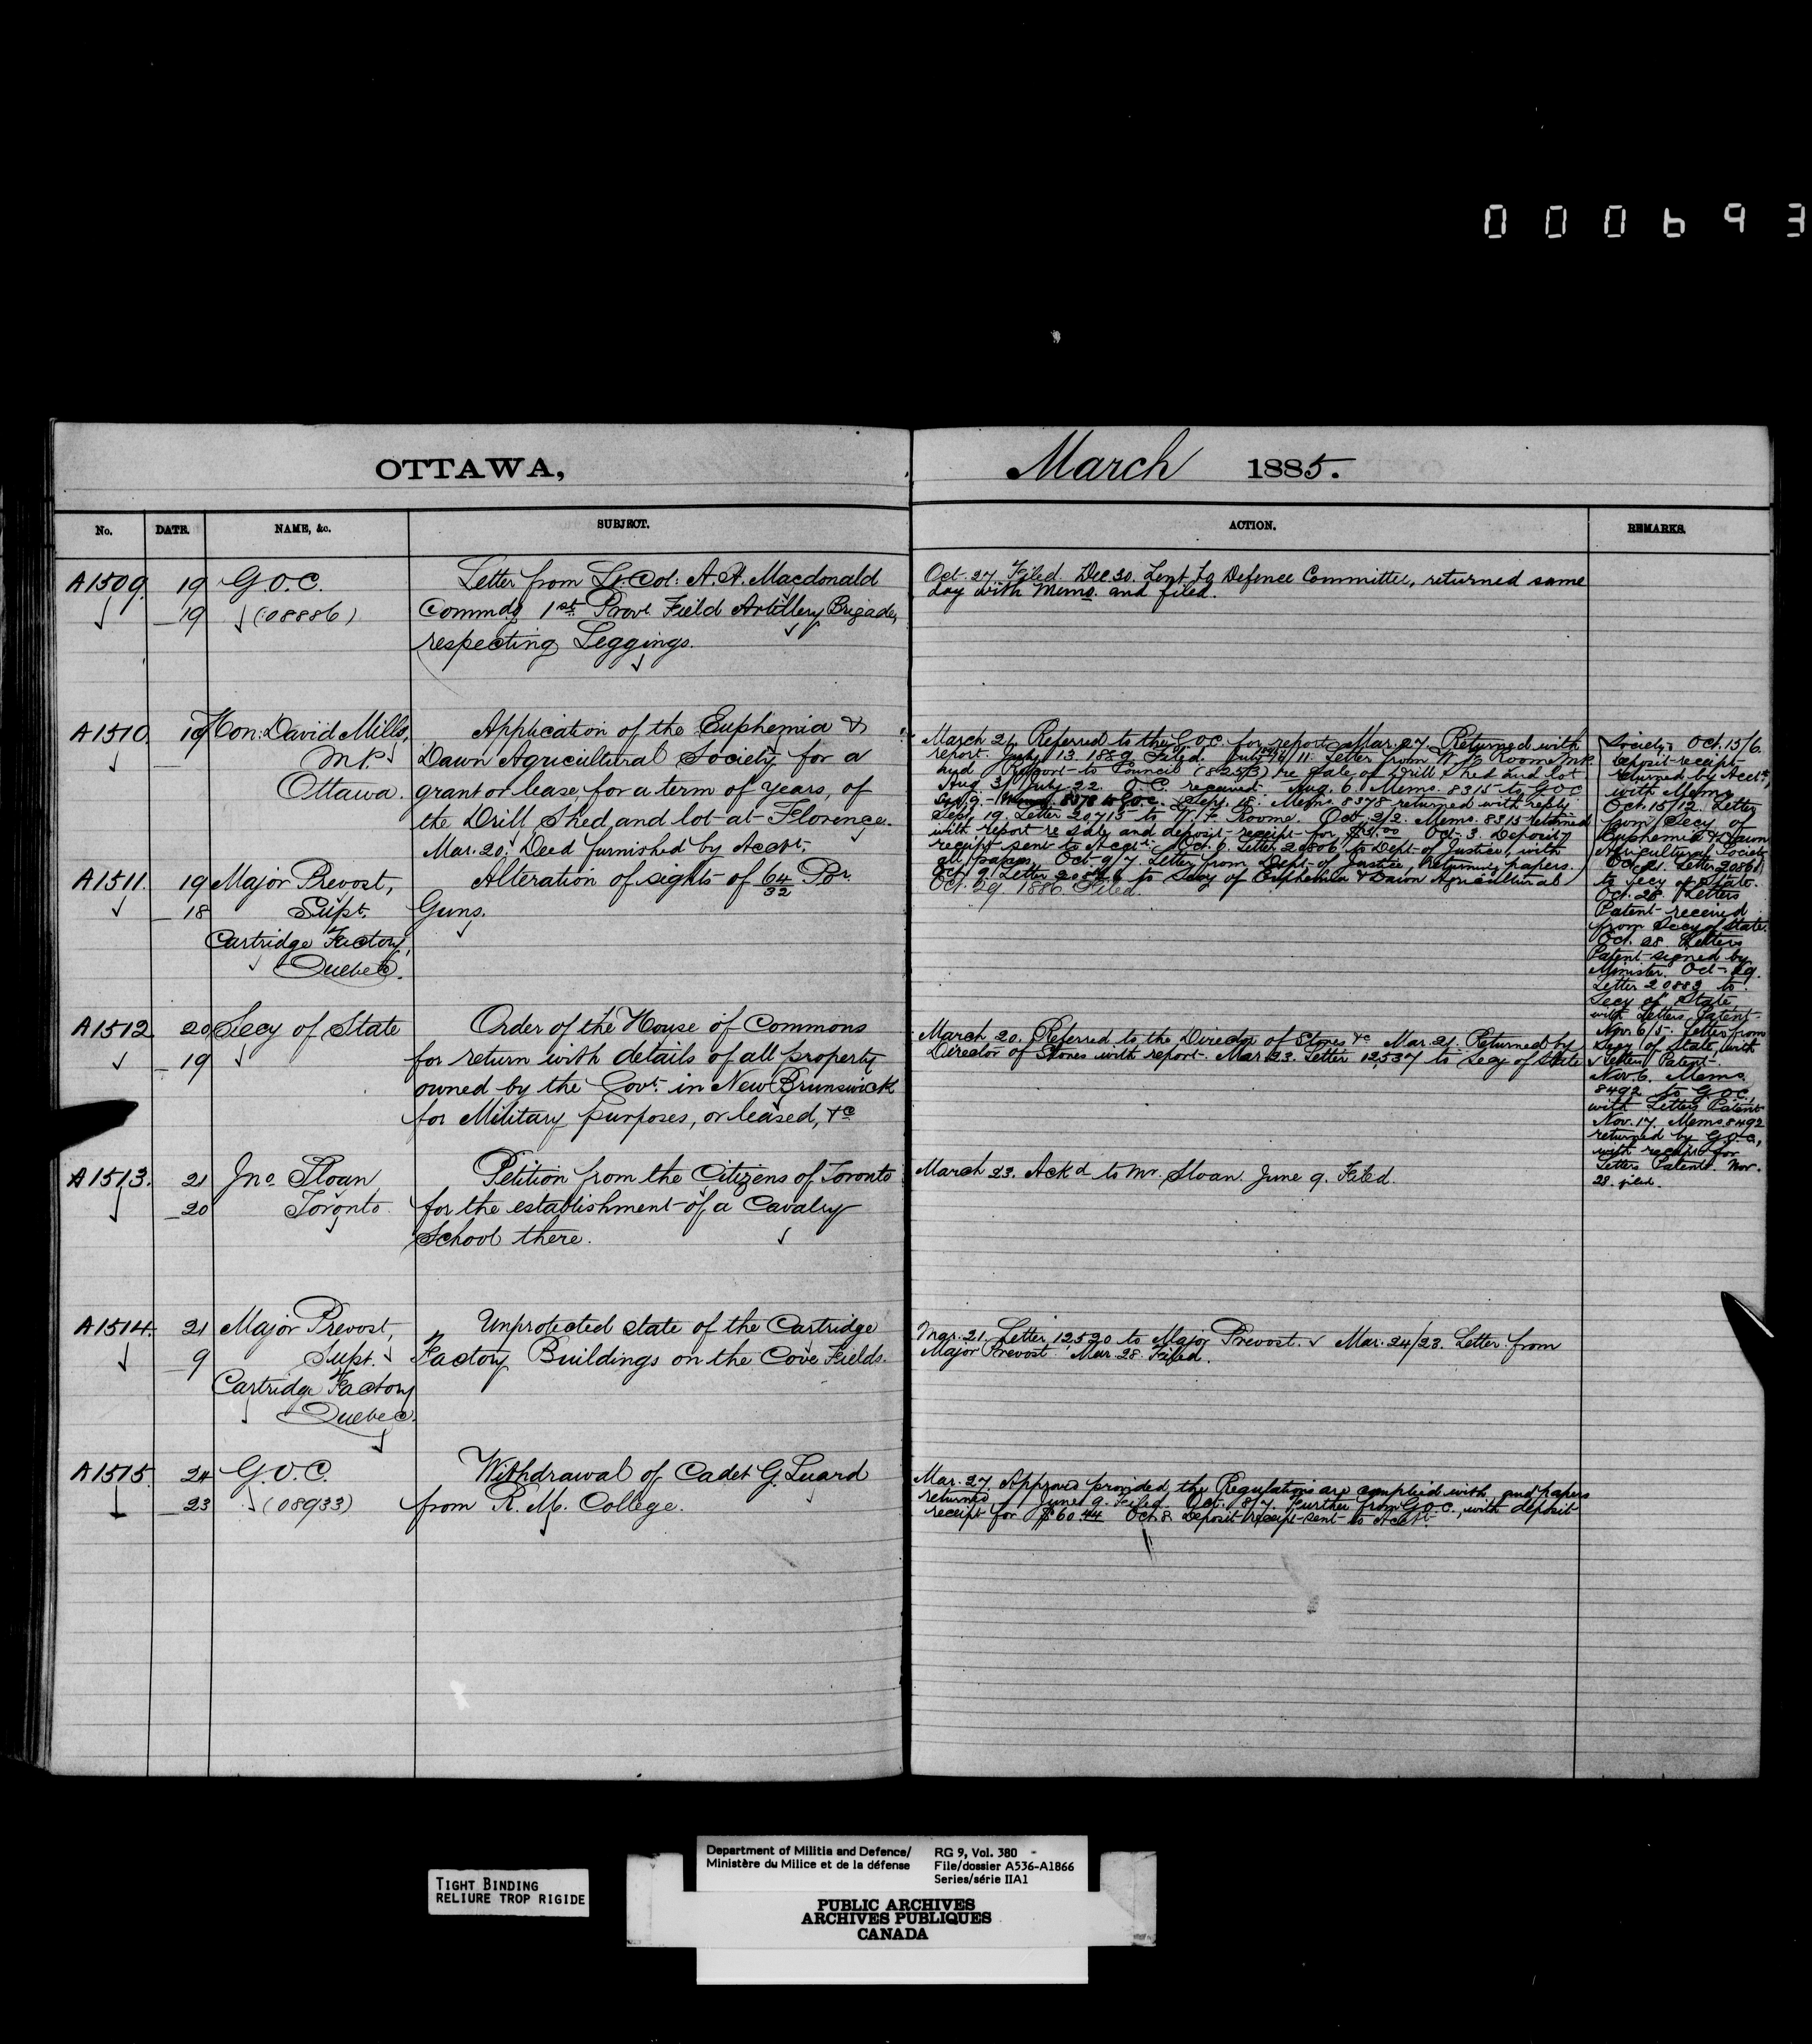 000693
OTTAWA,
March 1885.
No. DATE. NAME, &c. SUBJECT. ACTION. REMARKS.
A1509. 19 G.O.C. Letter from Lt. Col: A. A. Macdonald
19 (08886) Commdg 1st Provl. Field Artillery Brigade,
respecting Leggings.
Oct. 27 Filed. Dec 30. Lent to Defence Committee, returned same
day with Memo. and filed.
A1510. 19 Hon: David Mills, Application of the Euphemia &
M.P. Dawn Agricultural Society for a
Ottawa. grant or lease, for a term of years, of
the Drill Shed and lot at Florence.
Mar. 20. Deed furnished by Acct.
March 21. Referred to the G.O.C. for report. Mar. 27. Returned with
report. 13. 1889. Filed. July 11. Letter from W. F. Roome M.P.
and Report to Council (8253) re sale of Drill Shed and lot
Aug 3/July 22. O.C. received. Aug. 6. Memo. 8315 to G.O.C.
Sep. 9. 8378 to G.O.C. Sep. 18. Memo. 8378 returned with reply
Sept. 19. Letter 20713 to W. F. Roome. Oct. 2/2. Memo. 8315 returned
with report re sale and deposit receipt for Oct. 3. Deposit
receipt sent to Acct. Oct. 6. Letter 20806 to Dept. of Justice, with
all papers. Oct. 9/7. Letter from Dept. of Justice, returning papers.
Oct. 9. Letter to Secy of Euphemia & Dawn Agricultural
Society. Oct. 15/6.
Deposit receipt
returned by Acct.,
with Memo.
Oct. 15/12. Letter
from Secy of
Euphemia & Dawn
Agricultural Society
Oct. 21. Letter 20861
to Secy of State.
Oct. 28. Letters
Patent received
from Secy of State.
Oct. 28. Letters
Patent signed by
Minister. Oct. 29.
Letter 20883 to
Secy of State
with Letters Patent
Nov. 6/5. Letter from
Secy of State, with
Letters Patent.
Nov. 6. Memo.
8492 to G.O.C.,
with Letters Patent
Nov. 17. Memo. 8492
returned by G.O.C.,
with receipt for
Letters Patent. Nov.
28. filed.
A1511. 19 Major Prevost, Alteration of sights of 64/32 Por
18 Supt. Guns.
Cartridge Factory,
Quebec.
Oct. 29 1886. Filed.
A1512 20 Secy of State Order of the House of Commons
19 for return with details of all property
owned by the Govt. in New Brunswick
for Military purposes, or leased, &c
March 20. Referred to the Director of Stores &c Mar. 21. Returned by
Director of Stores with report. Mar. 23. Letter 12537 to Secy of State
A1513. 21 Jno. Sloan Petition from the Citizens of Toronto
20 Toronto. for the establishment of a Cavalry
School there.
March 23. Ackd to Mr. Sloan. June 9. Filed.
A1514. 21 Major Prevost, Unprotected state of the Cartridge
9 Supt. Factory Buildings on the Cove Fields.
Cartridge Factory
Quebec.
Mar. 21. Letter 12520 to Major Prevost. Mar. 24/23. Letter from
Major Prevost. Mar. 28. Filed.
A1515. 24 G.O.C. Withdrawal of Cadet G. Luard
23 (08933) from R. M. College.
Mar. 27. Approved provided the Regulations are complied with, and papers
returned June 9. Filed. Oct. 8/7. Further from G.O.C., with deposit
receipt for $60.44 Oct. 8 Deposit receipt sent to Acct.
TIGHT BINDING
RELIURE TROP RIGIDE
Department of Militia and Defence/
Ministère du Milice et de la défense
RG 9, Vol. 380
File/dossier A536-A1866
Series/série IIA1
PUBLIC ARCHIVES
ARCHIVES PUBLIQUES
CANADA